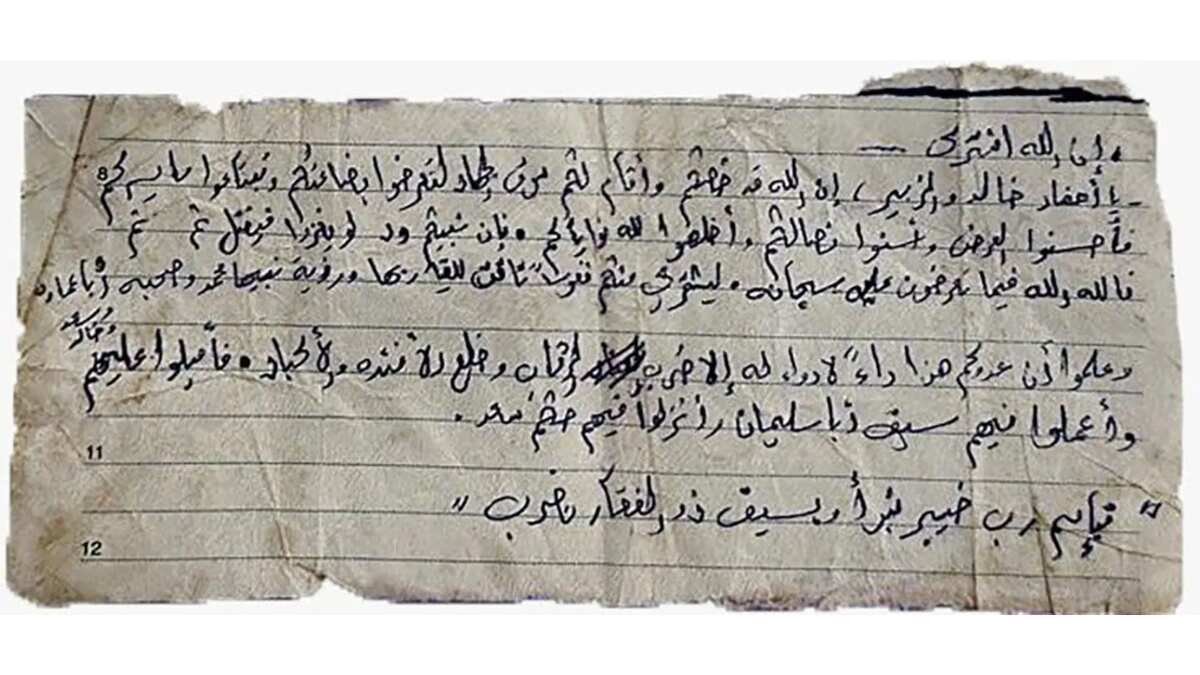 إن الله اشترى —
يا أحفاد خالد والزبير، إن الله قد خصكم وأقام لكم سوق الجهاد لتعرضوا بضاعتكم وتبتاعوا ما يسركم
8
فأحسنوا العرض وسنوا نصالكم وأخلصوا لله نواياكم، فإن نبيكم ود لو يغزوا فيقتل ثم ثم
فالله الله فيما تعرضون عليه سبحانه، ليشتري منكم نفوساً تاقت للقاء ربها ورؤية نبيها محمد وصحبه
وعلموا أن عدوكم هذا داءً لا دواء له إلا ضرب الرقاب وخلع الأفئدة والأكباد، فأقبلوا عليهم
وأعملوا فيهم سيف أبا سليمان وأنزلوا فيهم حكم سعد.
11
" فبإسم رب خيبر نبرأ وبسيف ذو الفقار نضرب "
12